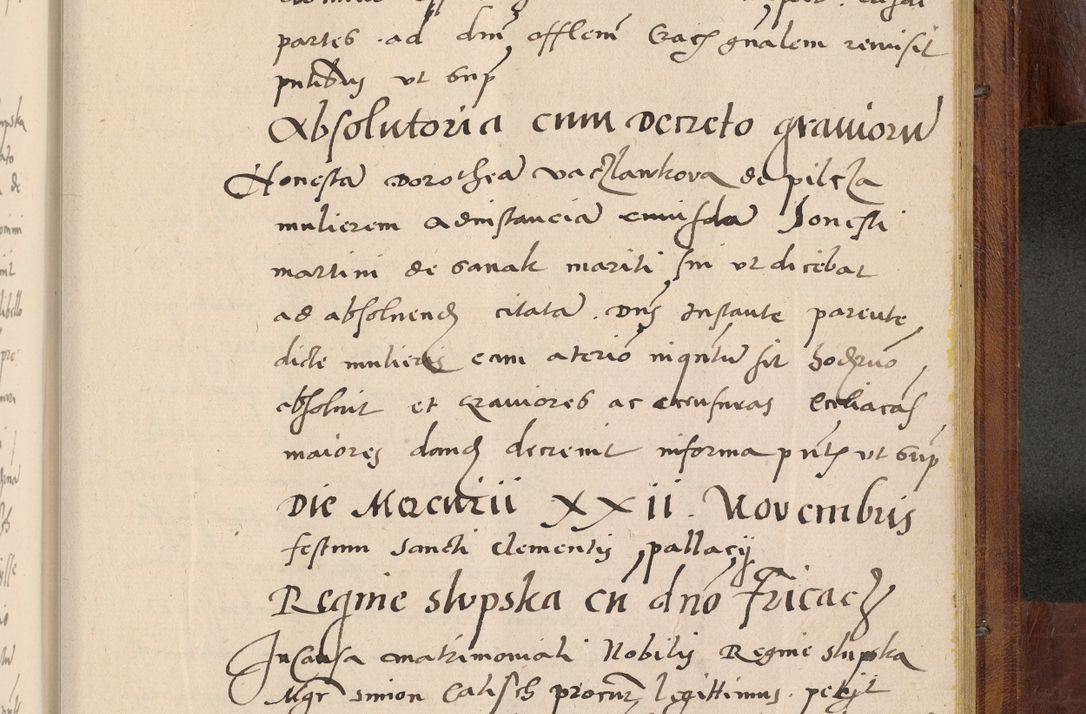 partes ad dnm offlem Crac gnalem remisit
pntibus ut sup
Absolutoria cum Decreto graviorum
Honesta Dorothea Vaczlawkova de pilcza
mulierem ad instancia cuiusda honesti
martini de Sanak mariti sui ut dicebat
ad absolvend citata Dns instante parente
dicte mulieris eam
absolvit et graviores ac censuras eccliacas
maiores dand decrevit in forma pntib ut sup
Die Mercurii XXii Novembris
festum sancti Clementis pallacij
Regine slupska cu dno Fricacz
In causa matrimoniali Nobilis Regine slupska
Mgr simon Calisch procur legittimus petijt